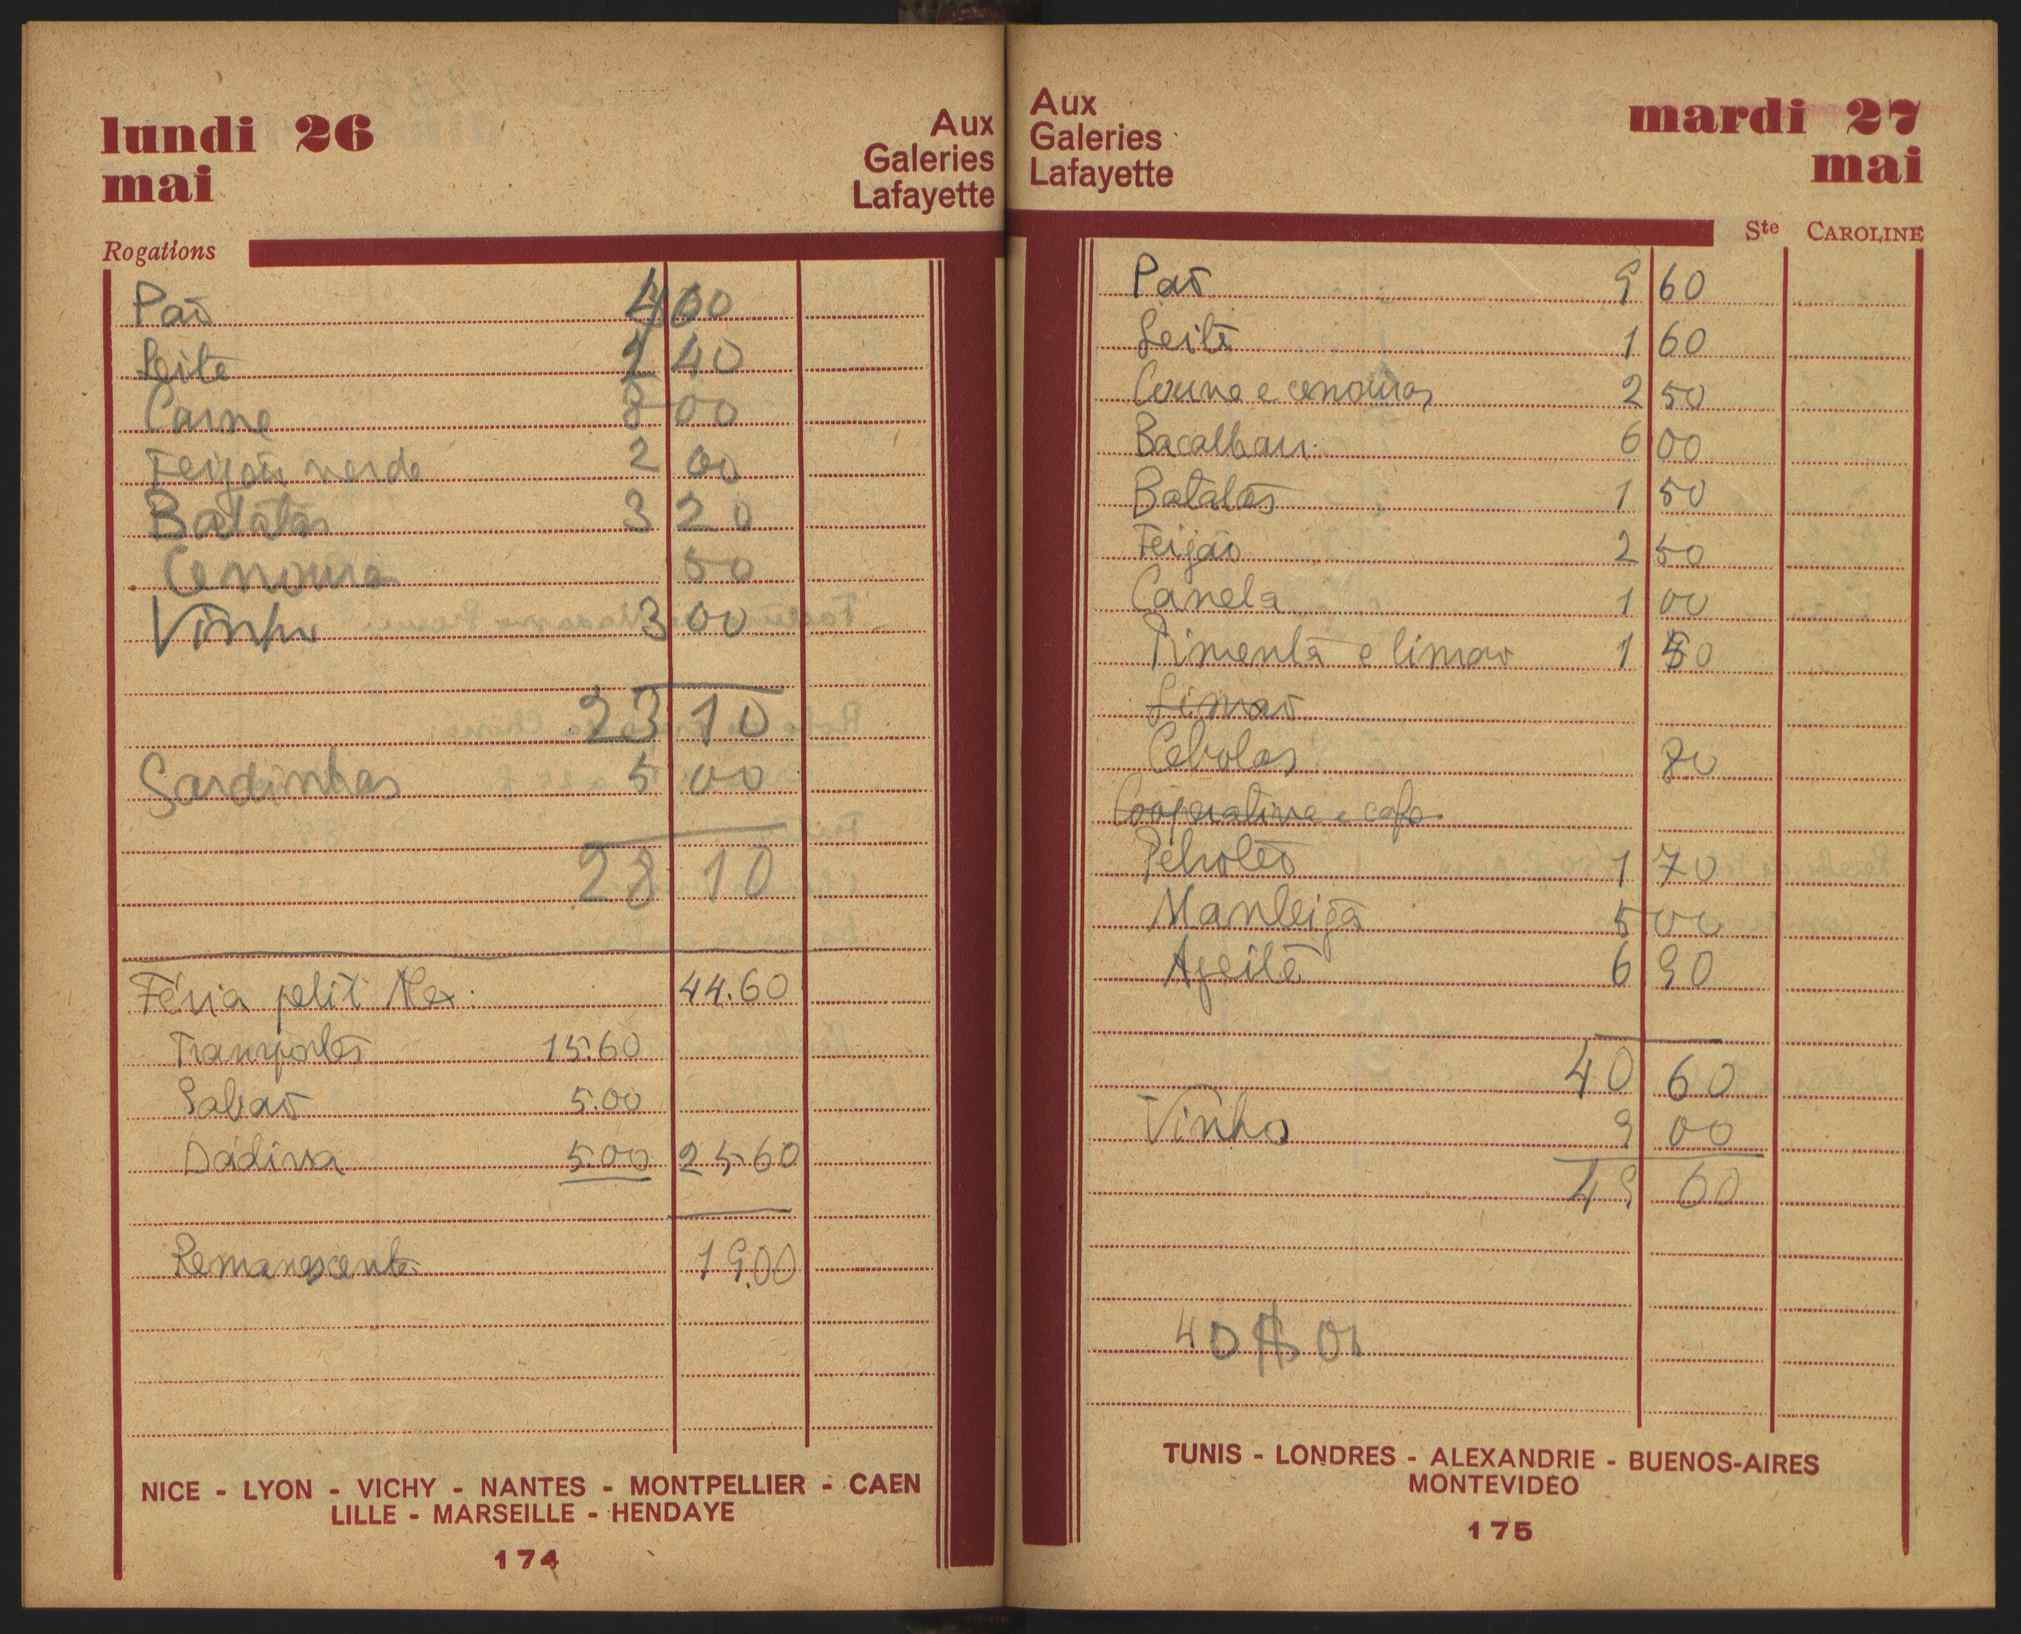 lundi 26
mai
Aux
Galeries
Lafayette
Rogations
Pão 4 00
Leite 2 40
Carne 8 00
Feijão verde 2 00
Batatas 3 20
Cenoura 50
Vinho 3 00
23 10
Sardinhas 5 00
28 10
Féria petit 44.60
Transportes 15.60
Sabão 5.00
Dádiva 5.00 25.60
Remanescente 19.00
NICE - LYON - VICHY - NANTES - MONTPELLIER - CAEN
LILLE - MARSEILLE - HENDAYE
174
Aux
Galeries
Lafayette
mardi 27
mai
Ste CAROLINE
Pão 9 60
Leite 1 60
Couve e cenouras 2 50
Bacalhau 6 00
Batatas 1 50
Feijão 2 50
Canela 1 00
Pimenta e limão 1 50
Limão
Cebolas 80
Cooperativa e café
Petroleo 1 70
Manteiga 5 00
Azeite 6 90
40 60
Vinho 9 00
49 60
TUNIS - LONDRES - ALEXANDRIE - BUENOS-AIRES
MONTEVIDEO
175